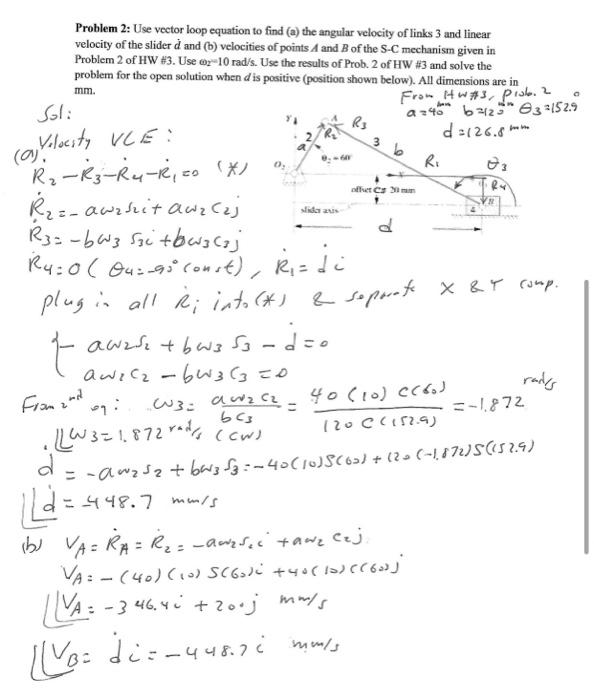 Problem 2: Use vector loop equation to find (a) the angular velocity of links 3 and linear
velocity of the slider ḋ and (b) velocities of points A and B of the S-C mechanism given in
Problem 2 of HW #3. Use ω2=10 rad/s. Use the results of Prob. 2 of HW #3 and solve the
problem for the open solution when d is positive (position shown below). All dimensions are in
mm.
From HW#3, Prob. 2
a=40mm b=120mm θ3=152.9°
d=126.8mm
Sol:
Velocity VLE:
(a).
Ṙ2-Ṙ3-Ṙ4-Ṙ1=0 (*)
Y A R3
2 R2 3 b
a
O2 θ2=60° R1 θ3
offset c= 20 mm R4
slider axis B
d
Ṙ2=-aω2S2i+aω2C2j
Ṙ3=-bω3S3i+bω3C3j
Ṙ4=0 (θ4=-90° const), Ṙ1=ḋi
plug in all Ṙi into (*) & separate X & Y comp.
{ -aω2S2+bω3S3-ḋ=0
aω2C2-bω3C3=0
From 2nd eq: ω3= aω2C2/bC3 = 40(10)C(60)/120C(152.9) =-1.872 rad/s
ω3=1.872 rad/s (CW)
ḋ=-aω2S2+bω3S3=-40(10)S(60)+120(-1.872)S(152.9)
ḋ=-448.7 mm/s
(b) VA=ṘA=Ṙ2=-aω2S2i+aω2C2j
VA=-(40)(10)S(60)i+40(10)C(60)j
VA=-346.4i+200j mm/s
VB=ḋi=-448.7i mm/s